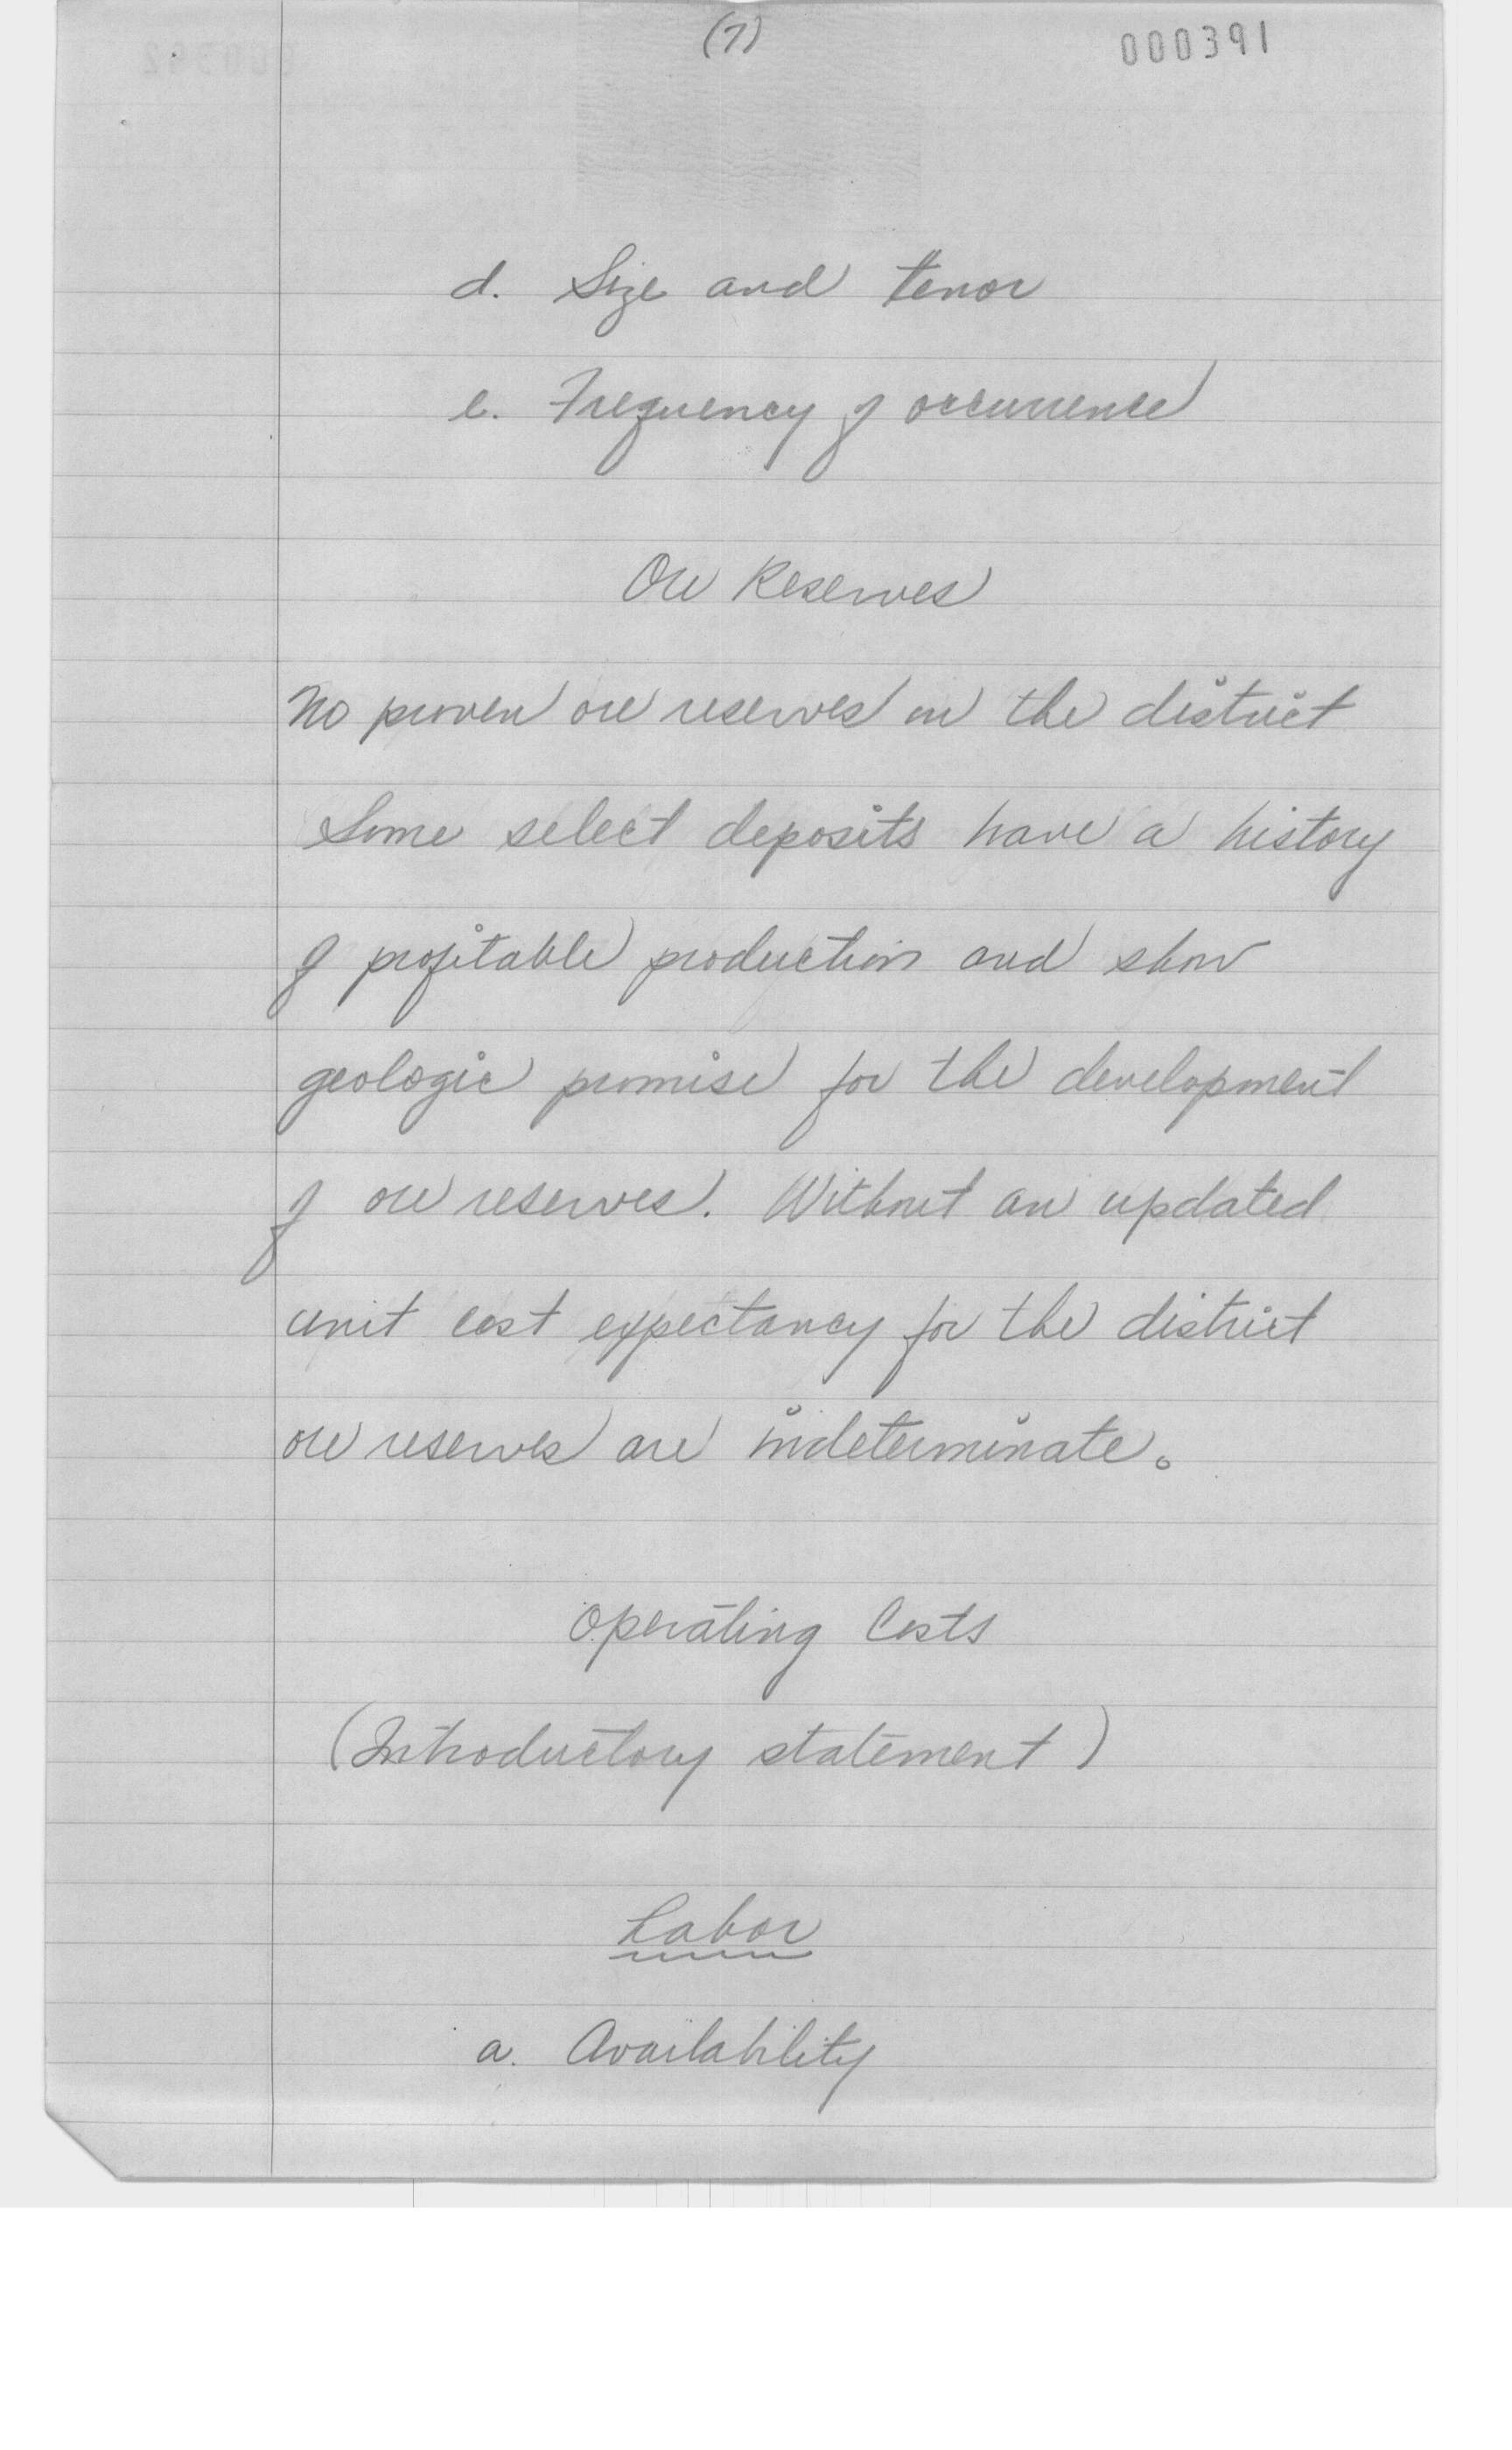 (7)
000391
d. Size and tenor
e. Frequency of occurrence
Ore Reserves
No proven ore reserves in the district
Some select deposits have a history
of profitable production and show
geologic promise for the development
of ore reserves. Without an updated
unit cost expectancy for the district
ore reserves are indeterminate.
Operating Costs
(Introductory statement)
Labor
a. Availability